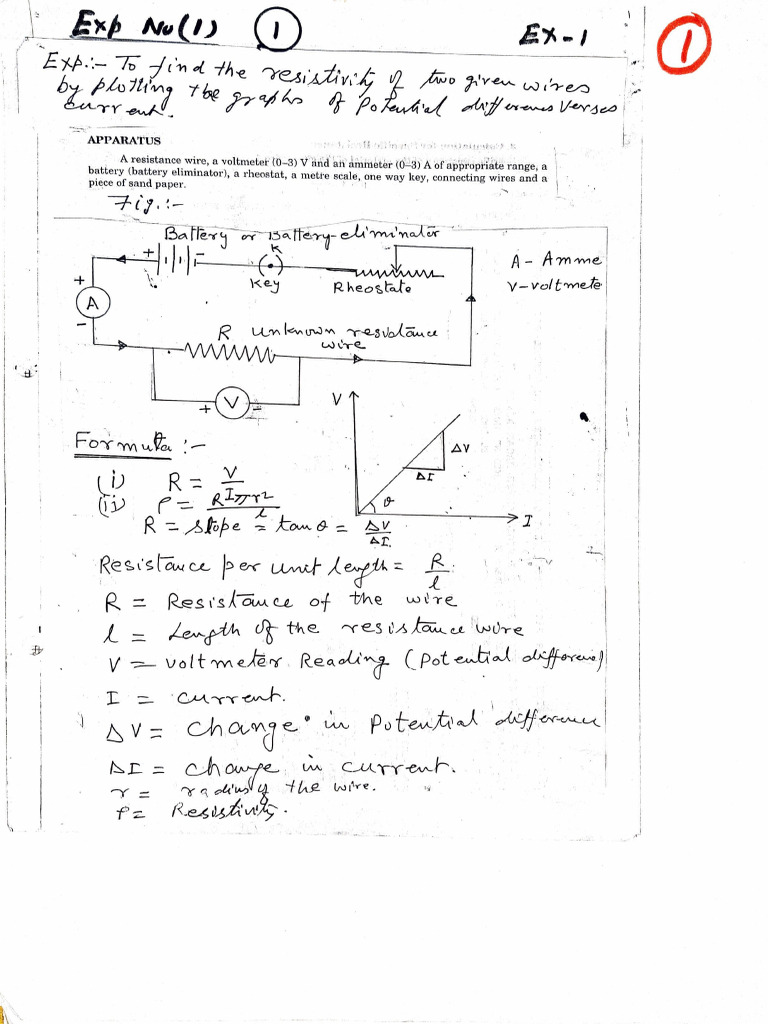 Exp No(1) 1 EX-1 1
Exp:- To find the resistivity of two given wires
by plotting the graphs of Potential difference verses
current.
APPARATUS
A resistance wire, a voltmeter (0–3) V and an ammeter (0–3) A of appropriate range, a
battery (battery eliminator), a rheostat, a metre scale, one way key, connecting wires and a
piece of sand paper.
Fig.:-
Battery or Battery-eliminator
+ - K
Key
Rheostate
A - Amme
V-voltmete
+
A
-
R unknown resistance
wire
+ V -
V
ΔV
ΔI
θ
I
Formula :-
(i) R = V/I
(ii) ρ = Rπr2/l
R = slope = tan θ = ΔV/ΔI
Resistance per unit length = R/l
R = Resistance of the wire
l = Length of the resistance wire
V = voltmeter Reading (Potential difference)
I = current.
ΔV = change in Potential difference
ΔI = change in current.
r = radius of the wire.
ρ = Resistivity.